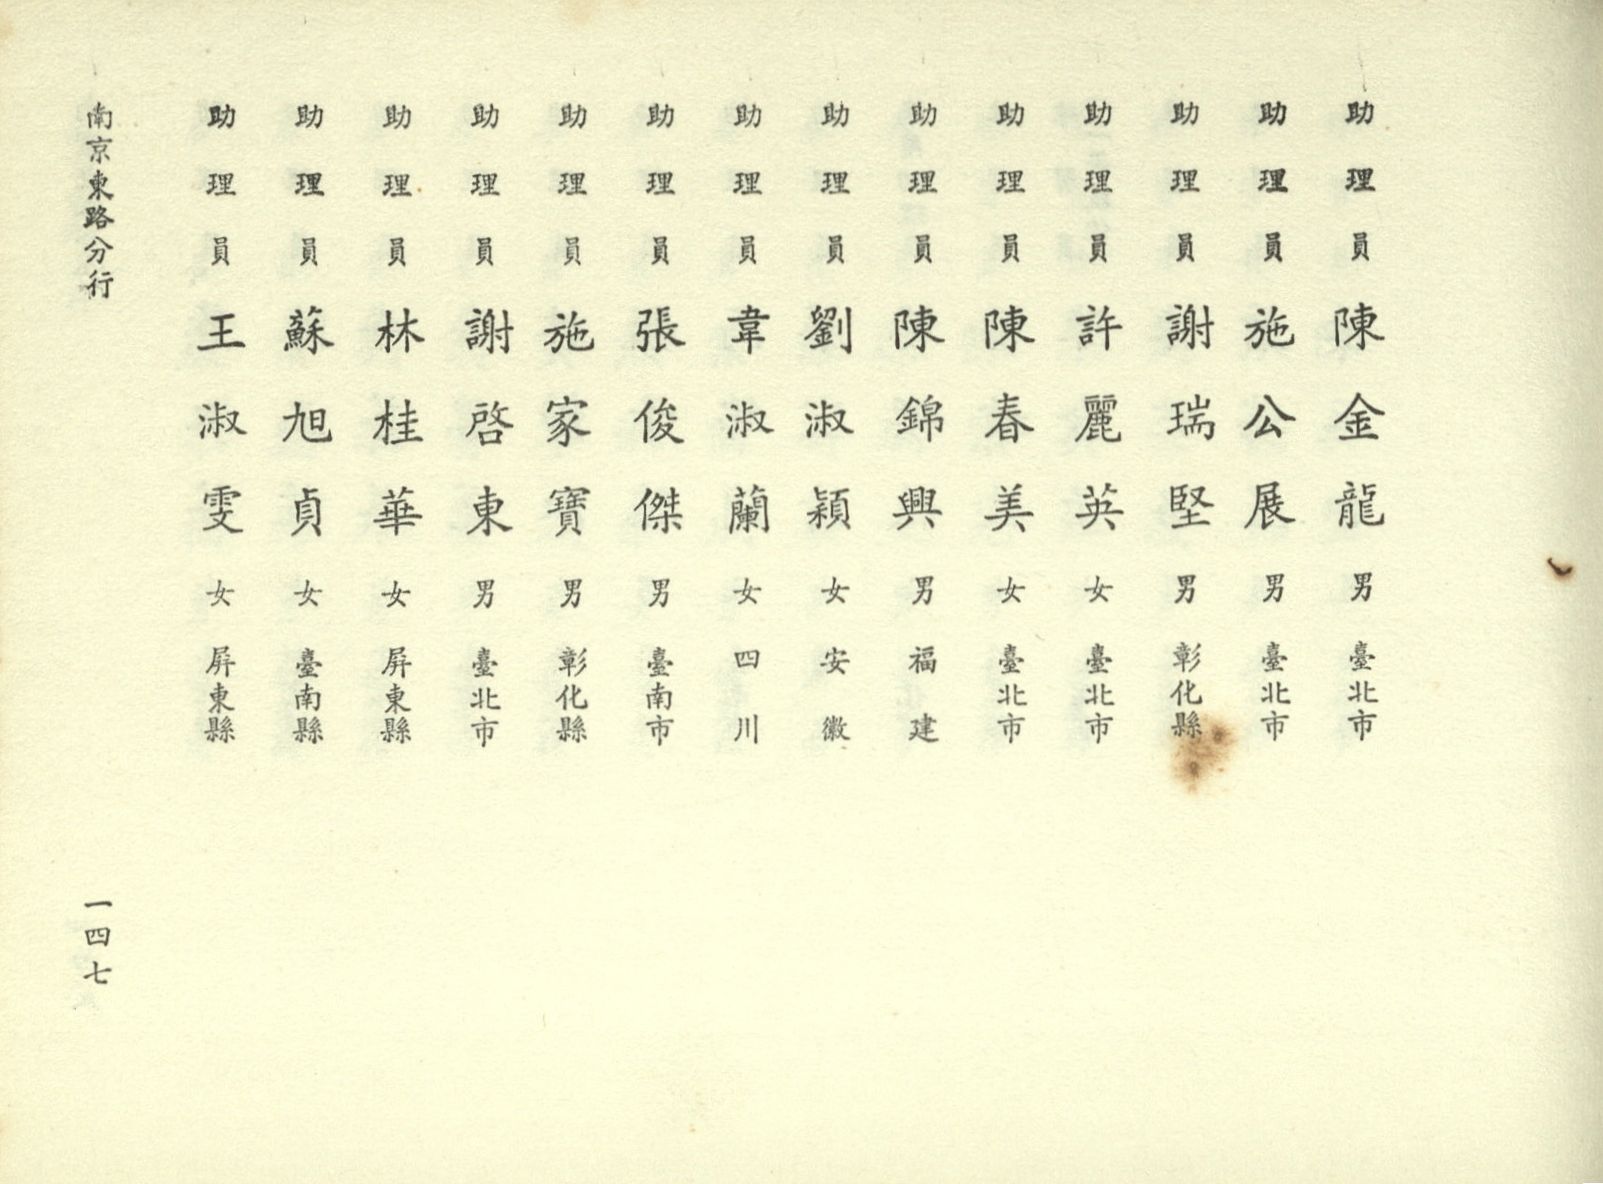 助理員 陳金龍 男 臺北市
助理員 施公展 男 臺北市
助理員 謝瑞堅 男 彰化縣
助理員 許麗英 女 臺北市
助理員 陳春美 女 臺北市
助理員 陳錦興 男 福建
助理員 劉淑穎 女 安徽
助理員 韋淑蘭 女 四川
助理員 張俊傑 男 臺南市
助理員 施家寶 男 彰化縣
助理員 謝啓東 男 臺北市
助理員 林桂華 女 屏東縣
助理員 蘇旭貞 女 臺南縣
助理員 王淑雯 女 屏東縣
南京東路分行
一四七